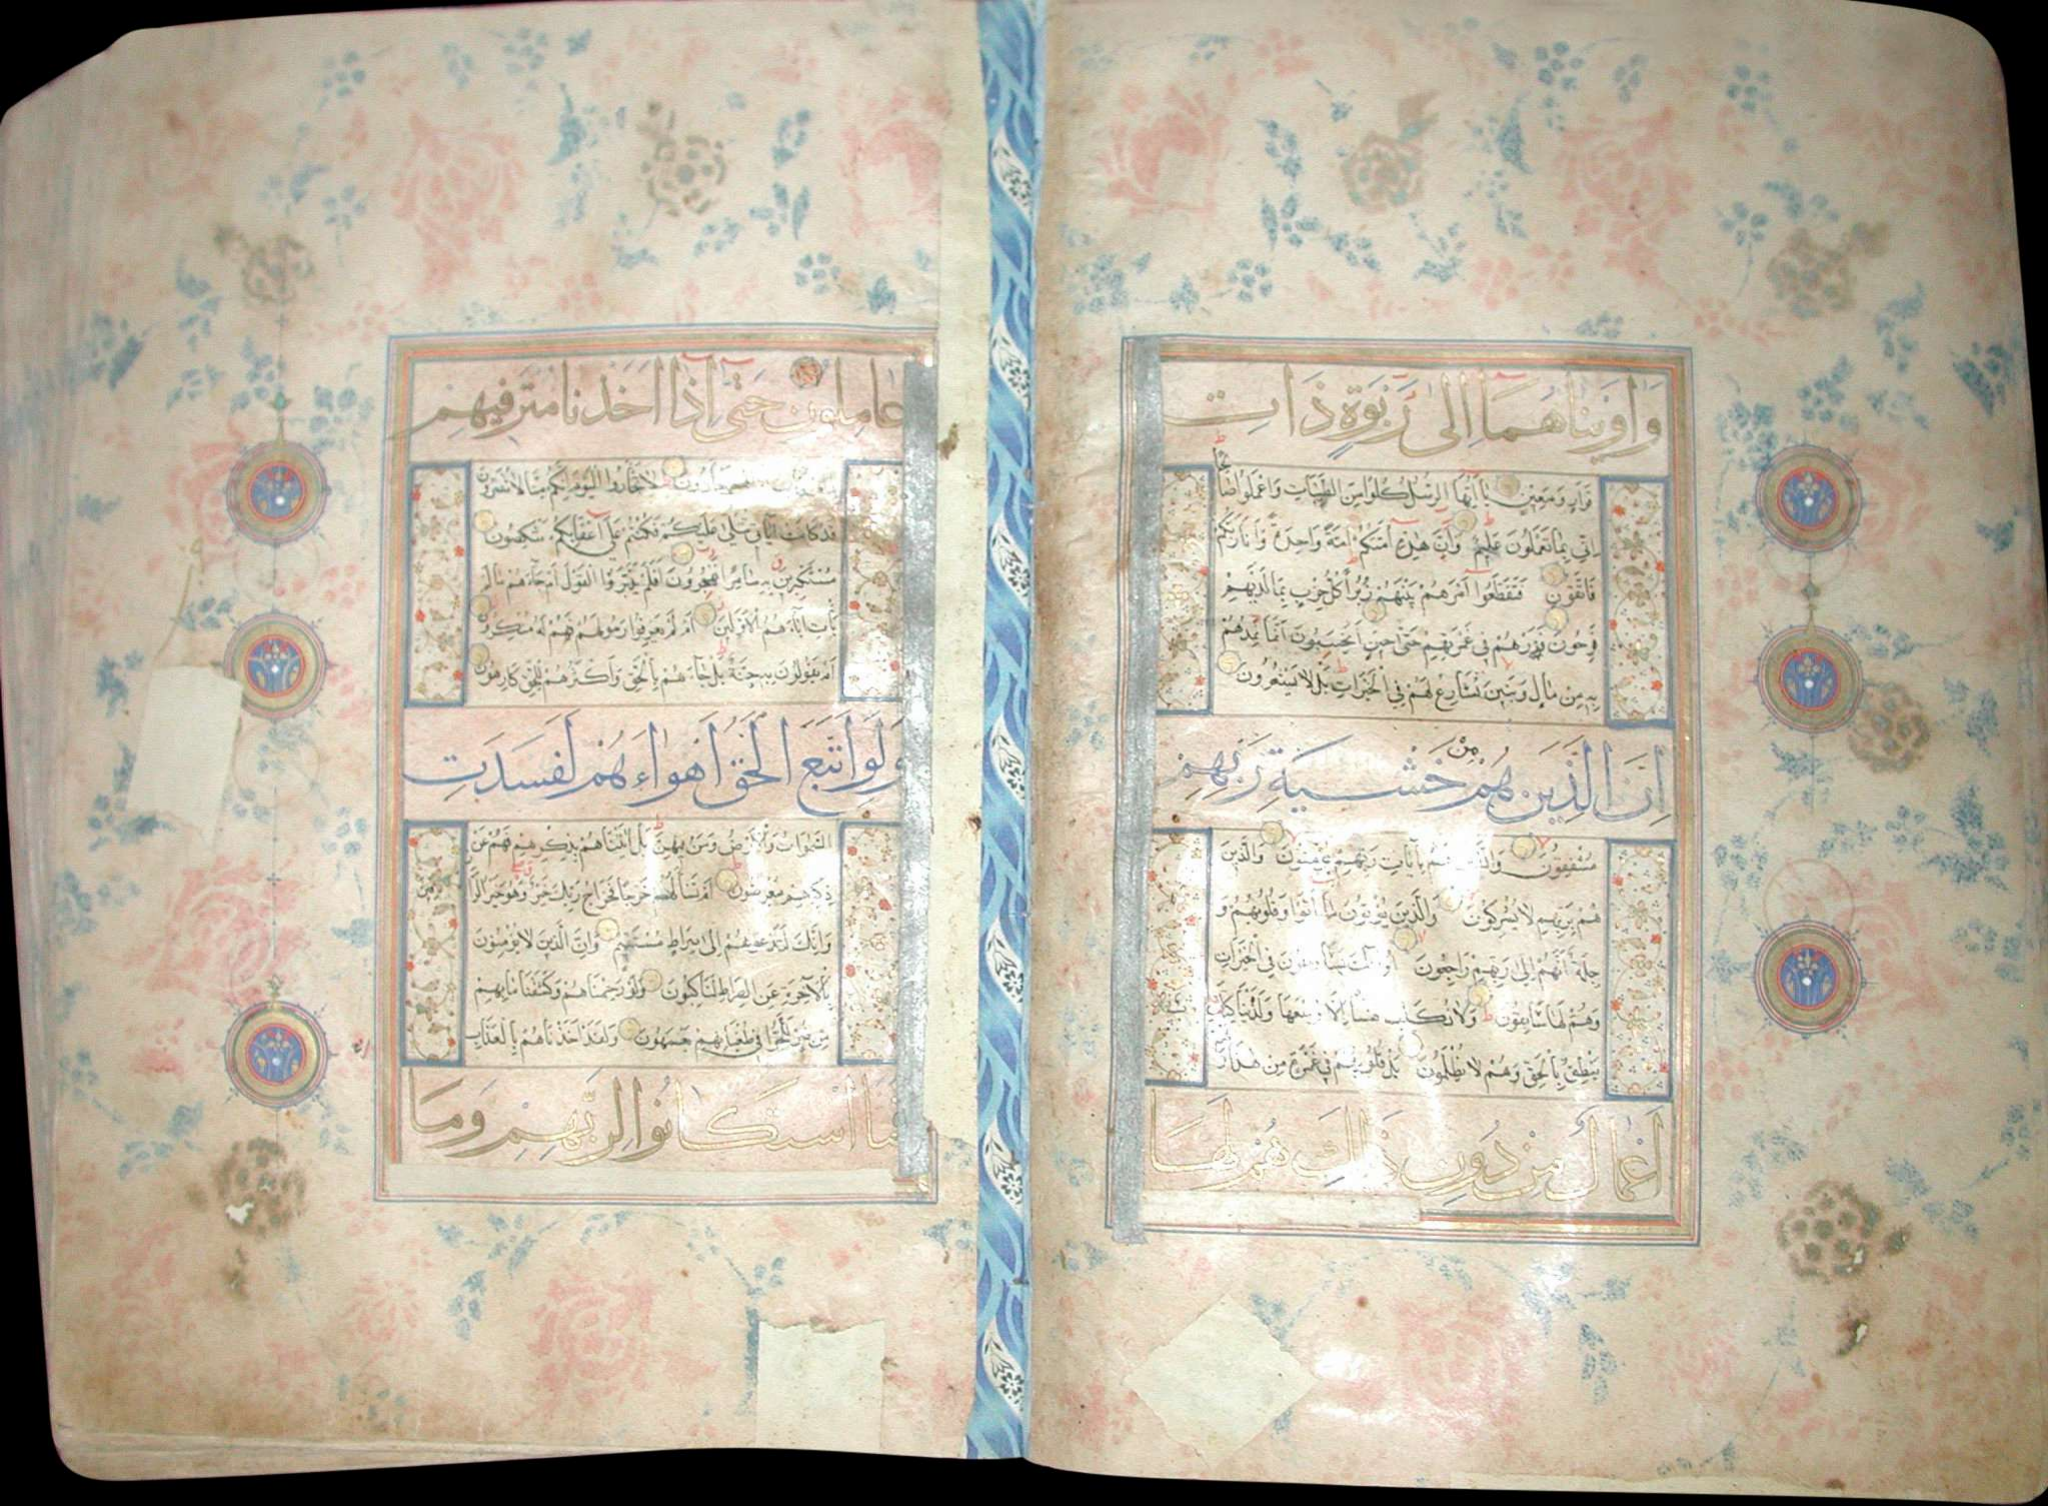 وَاٰوَيْنَاهُمَا اِلٰى رَبْوَةٍ ذَاتِ
قَرَارٍ وَمَعِينٍ يَا اَيُّهَا الرُّسُلُ كُلُوا مِنَ الطَّيِّبَاتِ وَاعْمَلُوا صَالِحًا
اِنِّي بِمَا تَعْمَلُونَ عَلِيمٌ وَاِنَّ هٰذِهِ اُمَّتُكُمْ اُمَّةً وَاحِدَةً وَاَنَا رَبُّكُمْ
فَاتَّقُونِ فَتَقَطَّعُوا اَمْرَهُمْ بَيْنَهُمْ زُبُرًا كُلُّ حِزْبٍ بِمَا لَدَيْهِمْ
فَرِحُونَ فَذَرْهُمْ فِي غَمْرَتِهِمْ حَتّٰى حِينٍ اَيَحْسَبُونَ اَنَّمَا نُمِدُّهُمْ
بِهِ مِنْ مَالٍ وَبَنِينَ نُسَارِعُ لَهُمْ فِي الْخَيْرَاتِ بَلْ لَا يَشْعُرُونَ
اِنَّ الَّذِينَ هُمْ مِنْ خَشْيَةِ رَبِّهِمْ
مُشْفِقُونَ وَالَّذِينَ هُمْ بِاٰيَاتِ رَبِّهِمْ يُؤْمِنُونَ وَالَّذِينَ
هُمْ بِرَبِّهِمْ لَا يُشْرِكُونَ وَالَّذِينَ يُؤْتُونَ مَا اٰتَوْا وَقُلُوبُهُمْ وَ
جِلَةٌ اَنَّهُمْ اِلٰى رَبِّهِمْ رَاجِعُونَ فِي الْخَيْرَاتِ
وَهُمْ لَهَا سَابِقُونَ وَلَا نُكَلِّفُ نَفْسًا اِلَّا وُسْعَهَا وَلَدَيْنَا كِتَابٌ
يَنْطِقُ بِالْحَقِّ وَهُمْ لَا يُظْلَمُونَ بَلْ قُلُوبُهُمْ فِي غَمْرَةٍ مِنْ هٰذَا وَلَهُمْ
اَعْمَالٌ مِنْ دُونِ ذٰلِكَ هُمْ لَهَا
عَامِلُونَ حَتّٰى اِذَا اَخَذْنَا مُتْرَفِيهِمْ
يَجْأَرُونَ لَا تَجْأَرُوا الْيَوْمَ اِنَّكُمْ مِنَّا لَا تُنْصَرُونَ
قَدْ كَانَتْ اٰيَاتِي تُتْلٰى عَلَيْكُمْ فَكُنْتُمْ عَلٰى اَعْقَابِكُمْ تَنْكِصُونَ
مُسْتَكْبِرِينَ بِهِ سَامِرًا تَهْجُرُونَ اَفَلَمْ يَدَّبَّرُوا الْقَوْلَ اَمْ جَاءَهُمْ مَا لَمْ
يَأْتِ اٰبَاءَهُمُ الْاَوَّلِينَ اَمْ لَمْ يَعْرِفُوا رَسُولَهُمْ فَهُمْ لَهُ مُنْكِرُونَ
اَمْ يَقُولُونَ بِهِ جِنَّةٌ بَلْ جَاءَهُمْ بِالْحَقِّ وَاَكْثَرُهُمْ لِلْحَقِّ كَارِهُونَ
وَلَوِ اتَّبَعَ الْحَقُّ اَهْوَاءَهُمْ لَفَسَدَتِ
السَّمٰوَاتُ وَالْاَرْضُ وَمَنْ فِيهِنَّ بَلْ اَتَيْنَاهُمْ بِذِكْرِهِمْ فَهُمْ عَنْ
ذِكْرِهِمْ مُعْرِضُونَ اَمْ تَسْأَلُهُمْ خَرْجًا فَخَرَاجُ رَبِّكَ خَيْرٌ وَهُوَ خَيْرُ الرَّازِقِينَ
وَاِنَّكَ لَتَدْعُوهُمْ اِلٰى صِرَاطٍ مُسْتَقِيمٍ وَاِنَّ الَّذِينَ لَا يُؤْمِنُونَ
بِالْاٰخِرَةِ عَنِ الصِّرَاطِ لَنَاكِبُونَ وَلَوْ رَحِمْنَاهُمْ وَكَشَفْنَا مَا بِهِمْ
مِنْ ضُرٍّ لَلَجُّوا فِي طُغْيَانِهِمْ يَعْمَهُونَ وَلَقَدْ اَخَذْنَاهُمْ بِالْعَذَابِ
فَمَا اسْتَكَانُوا لِرَبِّهِمْ وَمَا